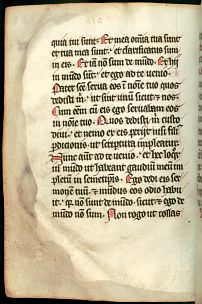 quia tui sunt. Et mea omnia tua sunt
et tua mea sunt. et clarificatus sum
in eis. Et iã nõ sum de mũdo. Et hij
in mũdo sũt. et ego ad te venio.
Pater sce serva eos ĩ noĩe tuo quos
dedisti m. ut sint unũ sicut et nos.
Cum eẽm cũ eis ego servabam eos
in noĩe tuo. Quos dedisti m custo
divi. et nemo ex eis perijt nisi fili
perdicionis. ut scriptura impleatur.
Nunc autẽ ad te venio. et hec loqr
in mũdo ut habeant gaudiũ meũ im
pletũ in semetipsis. Ego dedi eis ser
monẽ tuũ. et mũdus eos odio habu
it. qr nõ sunt de mũdo. sicut et ego de
mũdo nõ sum. Non rogo ut tollas